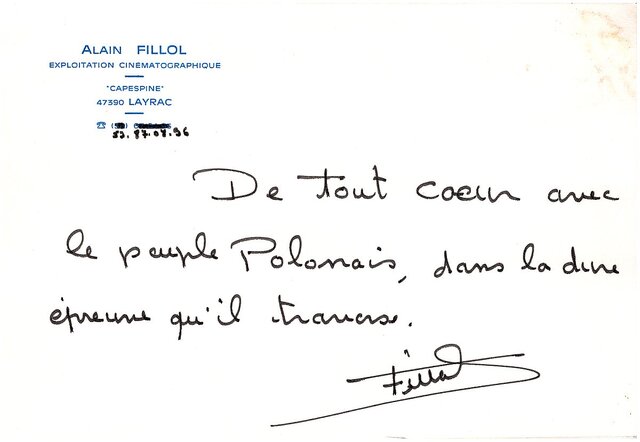 ALAIN FILLOL
EXPLOITATION CINEMATOGRAPHIQUE
"CAPESPINE"
47390 LAYRAC
☎ 53.87.04.96
De tout coeur avec
le peuple Polonais, dans la dure
épreuve qu'il traverse.
Fillol